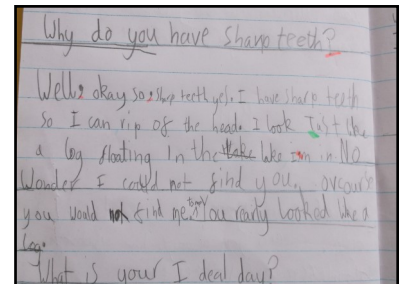 Why do you have sharp teeth?
Well, okay so, shrp teeth yes. I have sharp teeth
so I can rip of the head. I look Just like
a log floating in the lake I'm in No
Wonder I could not find you. ovcourse
you would not find me. You realy Looked like a
log.
What is your I deal day?